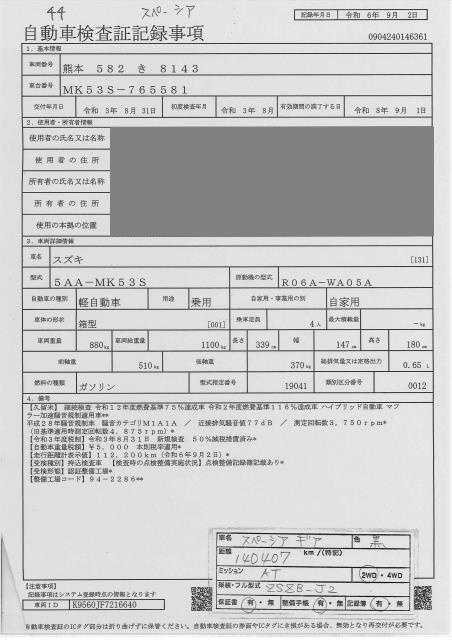 44 スペーシア
記録年月日 令和 6年 9月 2日
自動車検査証記録事項
0904240146361
1．基本情報
車両番号 熊本 582 き 8143
車台番号 MK53S-765581
交付年月日 令和 3年 8月 31日 初度検査年月 令和 3年 8月 有効期間の満了する日 令和 8年 9月 1日
2．使用者・所有者情報
使用者の氏名又は名称
使用者の住所
所有者の氏名又は名称
所有者の住所
使用の本拠の位置
3．車両詳細情報
車名 スズキ [131]
型式 5AA-MK53S 原動機の型式 R06A-WA05A
自動車の種別 軽自動車 用途 乗用 自家用・事業用の別 自家用
車体の形状 箱型 [001] 乗車定員 4人 最大積載量 -kg
車両重量 880kg 車両総重量 1100kg 長さ 339cm 幅 147cm 高さ 180cm
前軸重 510kg 後軸重 370kg 総排気量又は定格出力 0.65 L
燃料の種類 ガソリン 型式指定番号 19041 類別区分番号 0012
4．備考
【久留米】 継続検査 令和12年度燃費基準75％達成車 令和2年度燃費基準116％達成車 ハイブリッド自動車 マフ
ラー加速騒音規制適用車**
平成28年騒音規制車 騒音カテゴリM1A1A ／ 近接排気騒音値77dB ／ 測定回転数3，750rpm**
(旧基準適用時測定回転数4，875rpm)*
【令和3年度税制】令和3年8月31日 新規検査 50％減税措置済み*
【自動車重量税額】￥5，000 本則税率適用*
【走行距離計表示値】112，200km（令和6年9月2日）*
【受検種別】持込検査車 【検査時の点検整備実施状況】点検整備記録簿記載あり*
【受検形態】認証整備工場*
【整備工場コード】94-2286**
車名 スペーシア ギア 色 黒
距離 140407 km／(特記)
ミッション AT 2WD・4WD
架装・フル型式 ZSZB-J2
保証書 有・無 整備手帳 有・無 記録簿 有・無
【注意事項】
記録事項はシステム登録時点の情報となります
車両ID K9560JF7216640
自動車検査証のICタグ部分は折り曲げずに保管ください。自動車検査証の券面やICタグにき損がある場合、無効となり再交付が必要です。